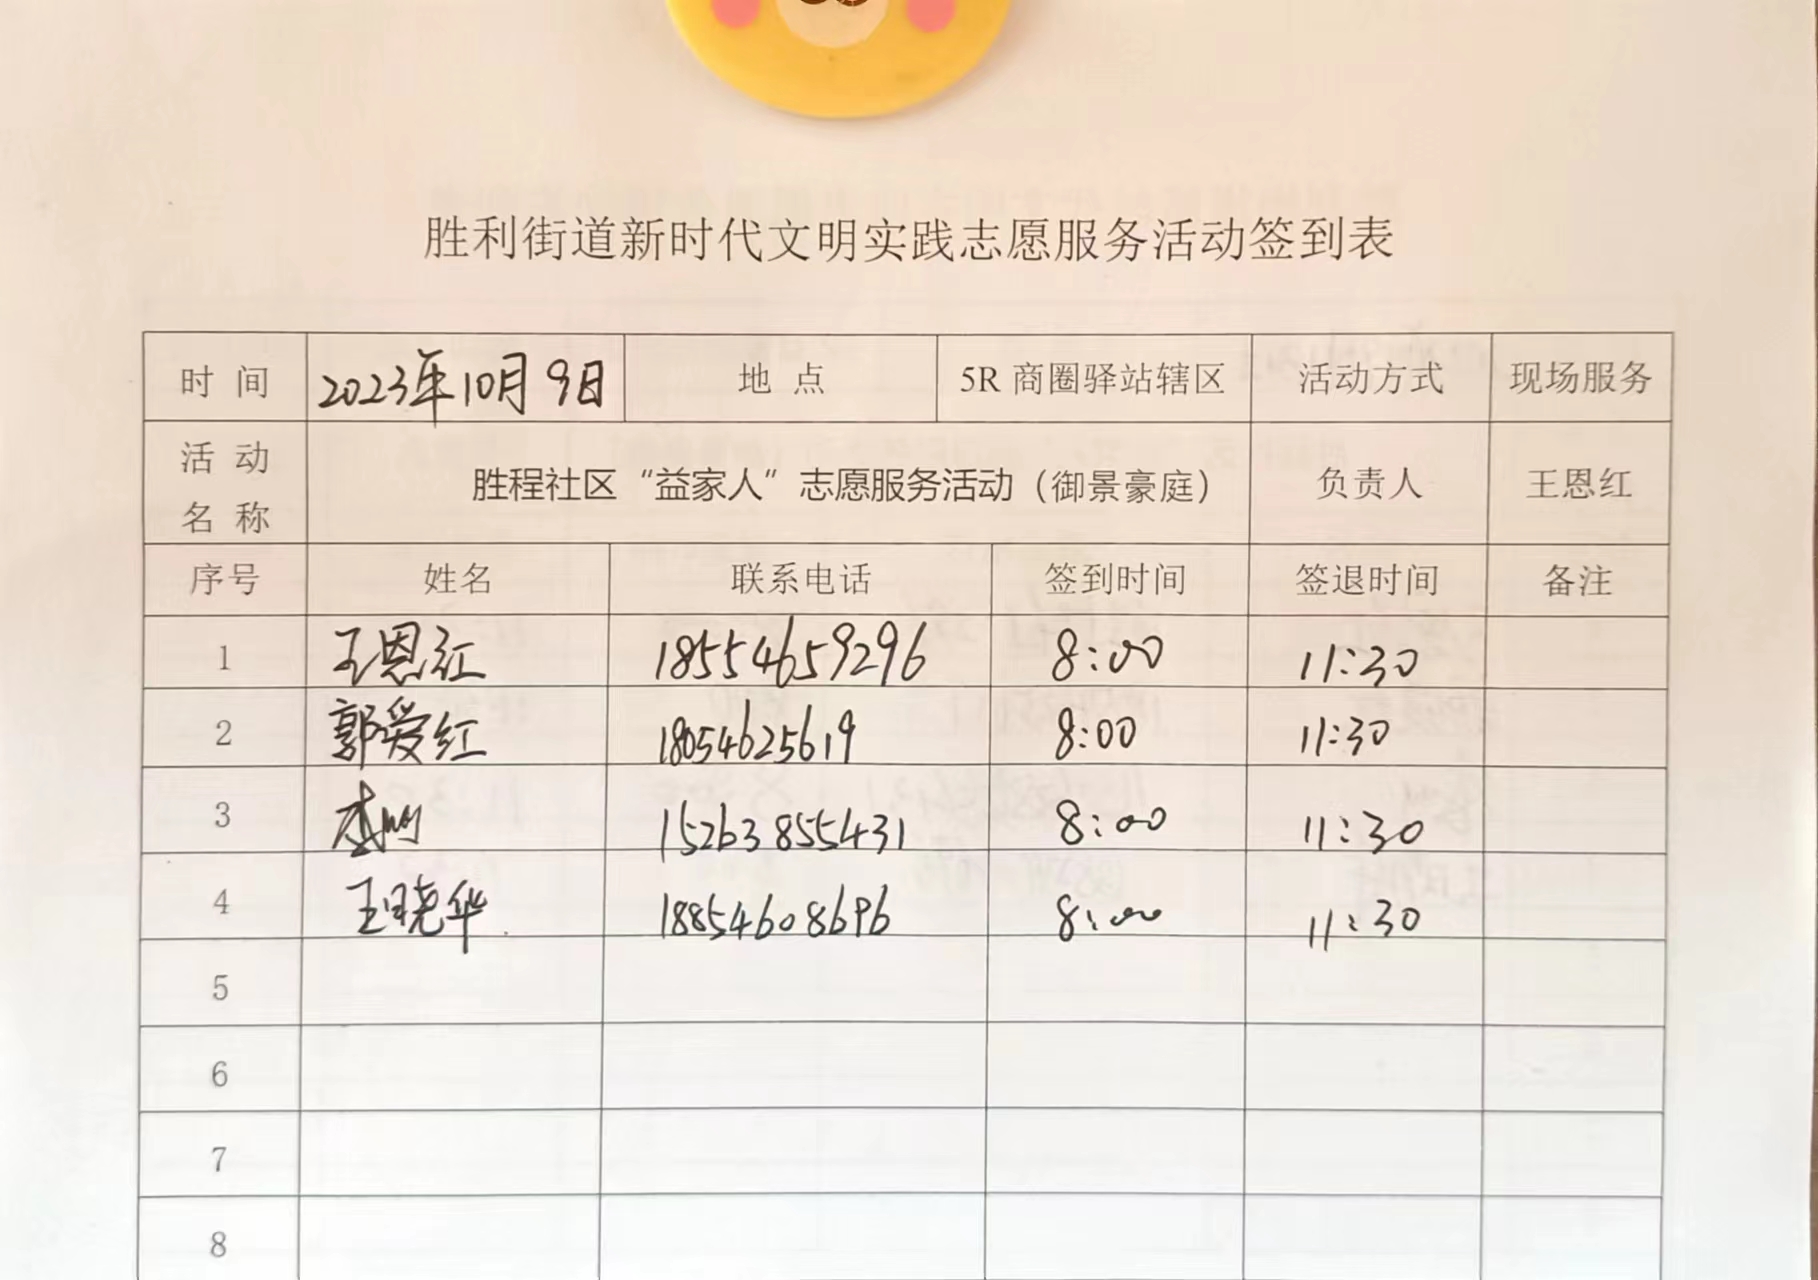 胜利街道新时代文明实践志愿服务活动签到表
时 间 2023年10月9日 地 点 5R 商圈驿站辖区 活动方式 现场服务
活 动
名 称 胜程社区“益家人”志愿服务活动（御景豪庭） 负责人 王恩红
序号 姓名 联系电话 签到时间 签退时间 备注
1 王恩红 18554659296 8:00 11:30
2 郭爱红 18054625619 8:00 11:30
3 15263855431 8:00 11:30
4 王晓华 18854608696 8:00 11:30
5
6
7
8